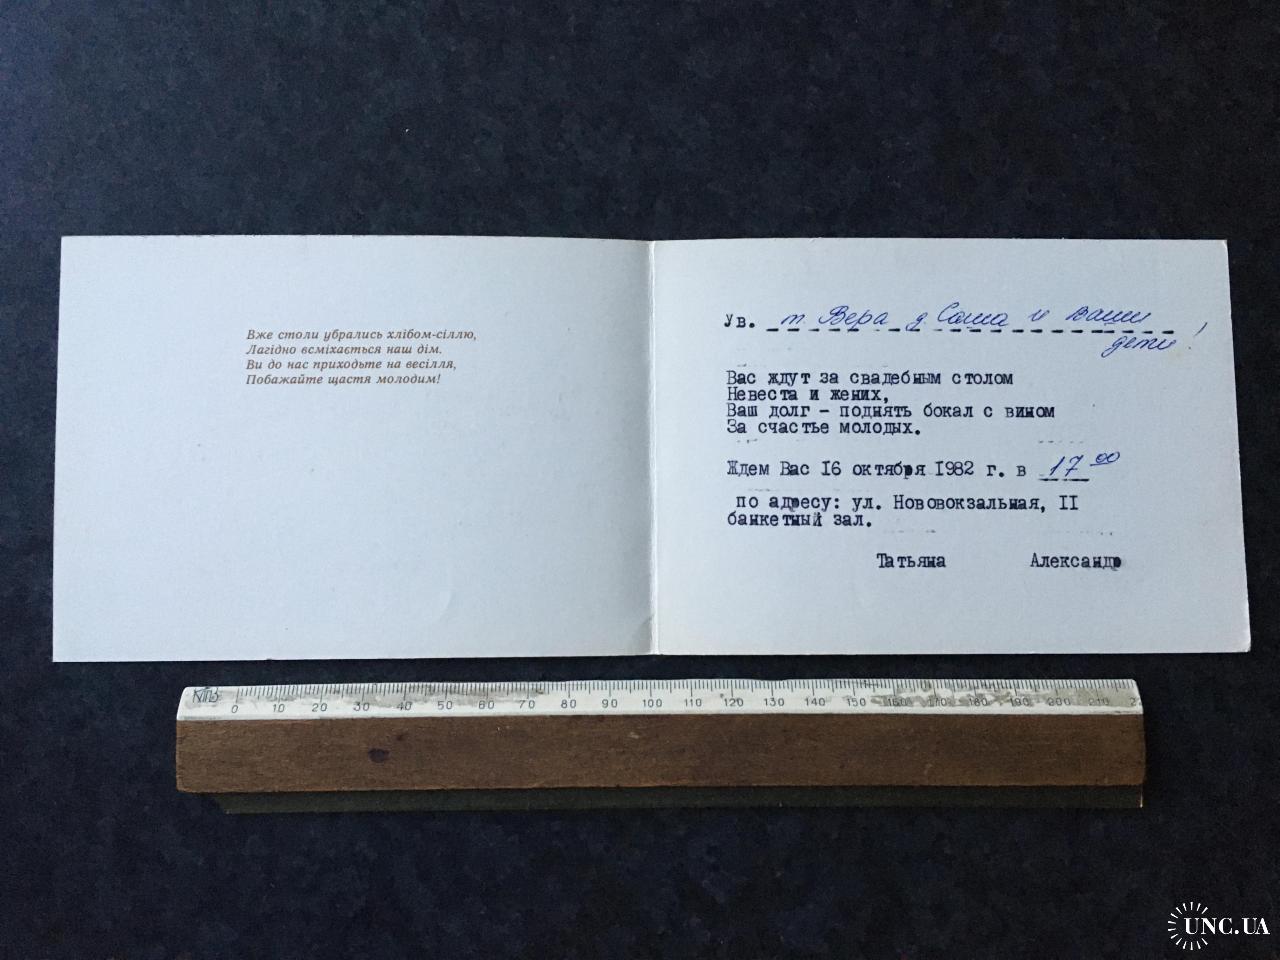 Вже столи убрались хлібом-сіллю,
Лагідно всміхається наш дім.
Ви до нас приходьте на весілля,
Побажайте щастя молодим!
Ув. т. Вера д. Саша и ваши
дети!
Вас ждут за свадебным столом
Невеста и жених,
Ваш долг - поднять бокал с вином
За счастье молодых.
Ждем Вас 16 октября 1982 г. в 17 00
по адресу: ул. Нововокзальная, II
банкетный зал.
Татьяна Александр
0 10 20 30 40 50 60 70 80 90 100 110 120 130 140 150 160 170 180 190 200 210
UNC.UA